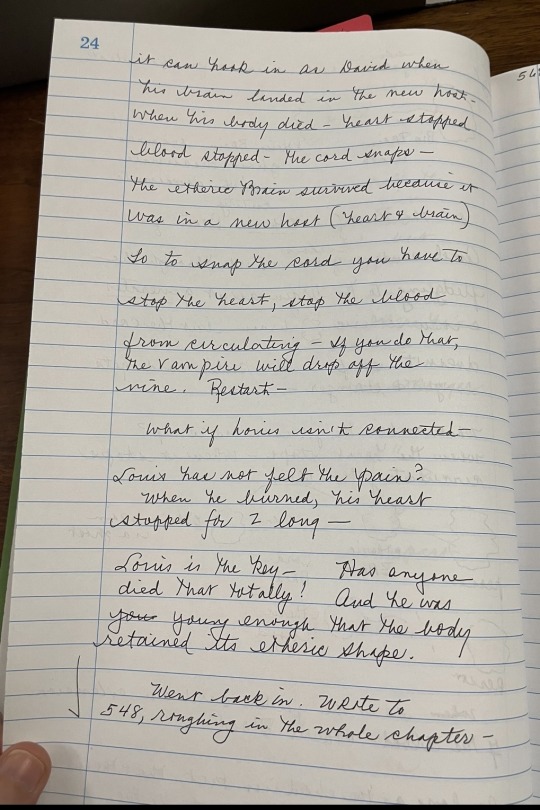 24
it can hook in as David when
his brain landed in the new host -
when his body died - heart stopped
blood stopped - the cord snaps -
the etheric Brain survived because it
was in a new host (heart & brain)
So to snap the cord you have to
stop the heart, stop the blood
from circulating - If you do that,
the vampire will drop off the
vine. Restart -
What if Louis isn't connected -
Louis has not felt the pain?
When he burned, his heart
stopped for 2 long -
Louis is the key - Has anyone
died that totally! And he was
you young enough that the body
retained its etheric shape.
Went back in. Wrote to
548, roughing in the whole chapter -
548